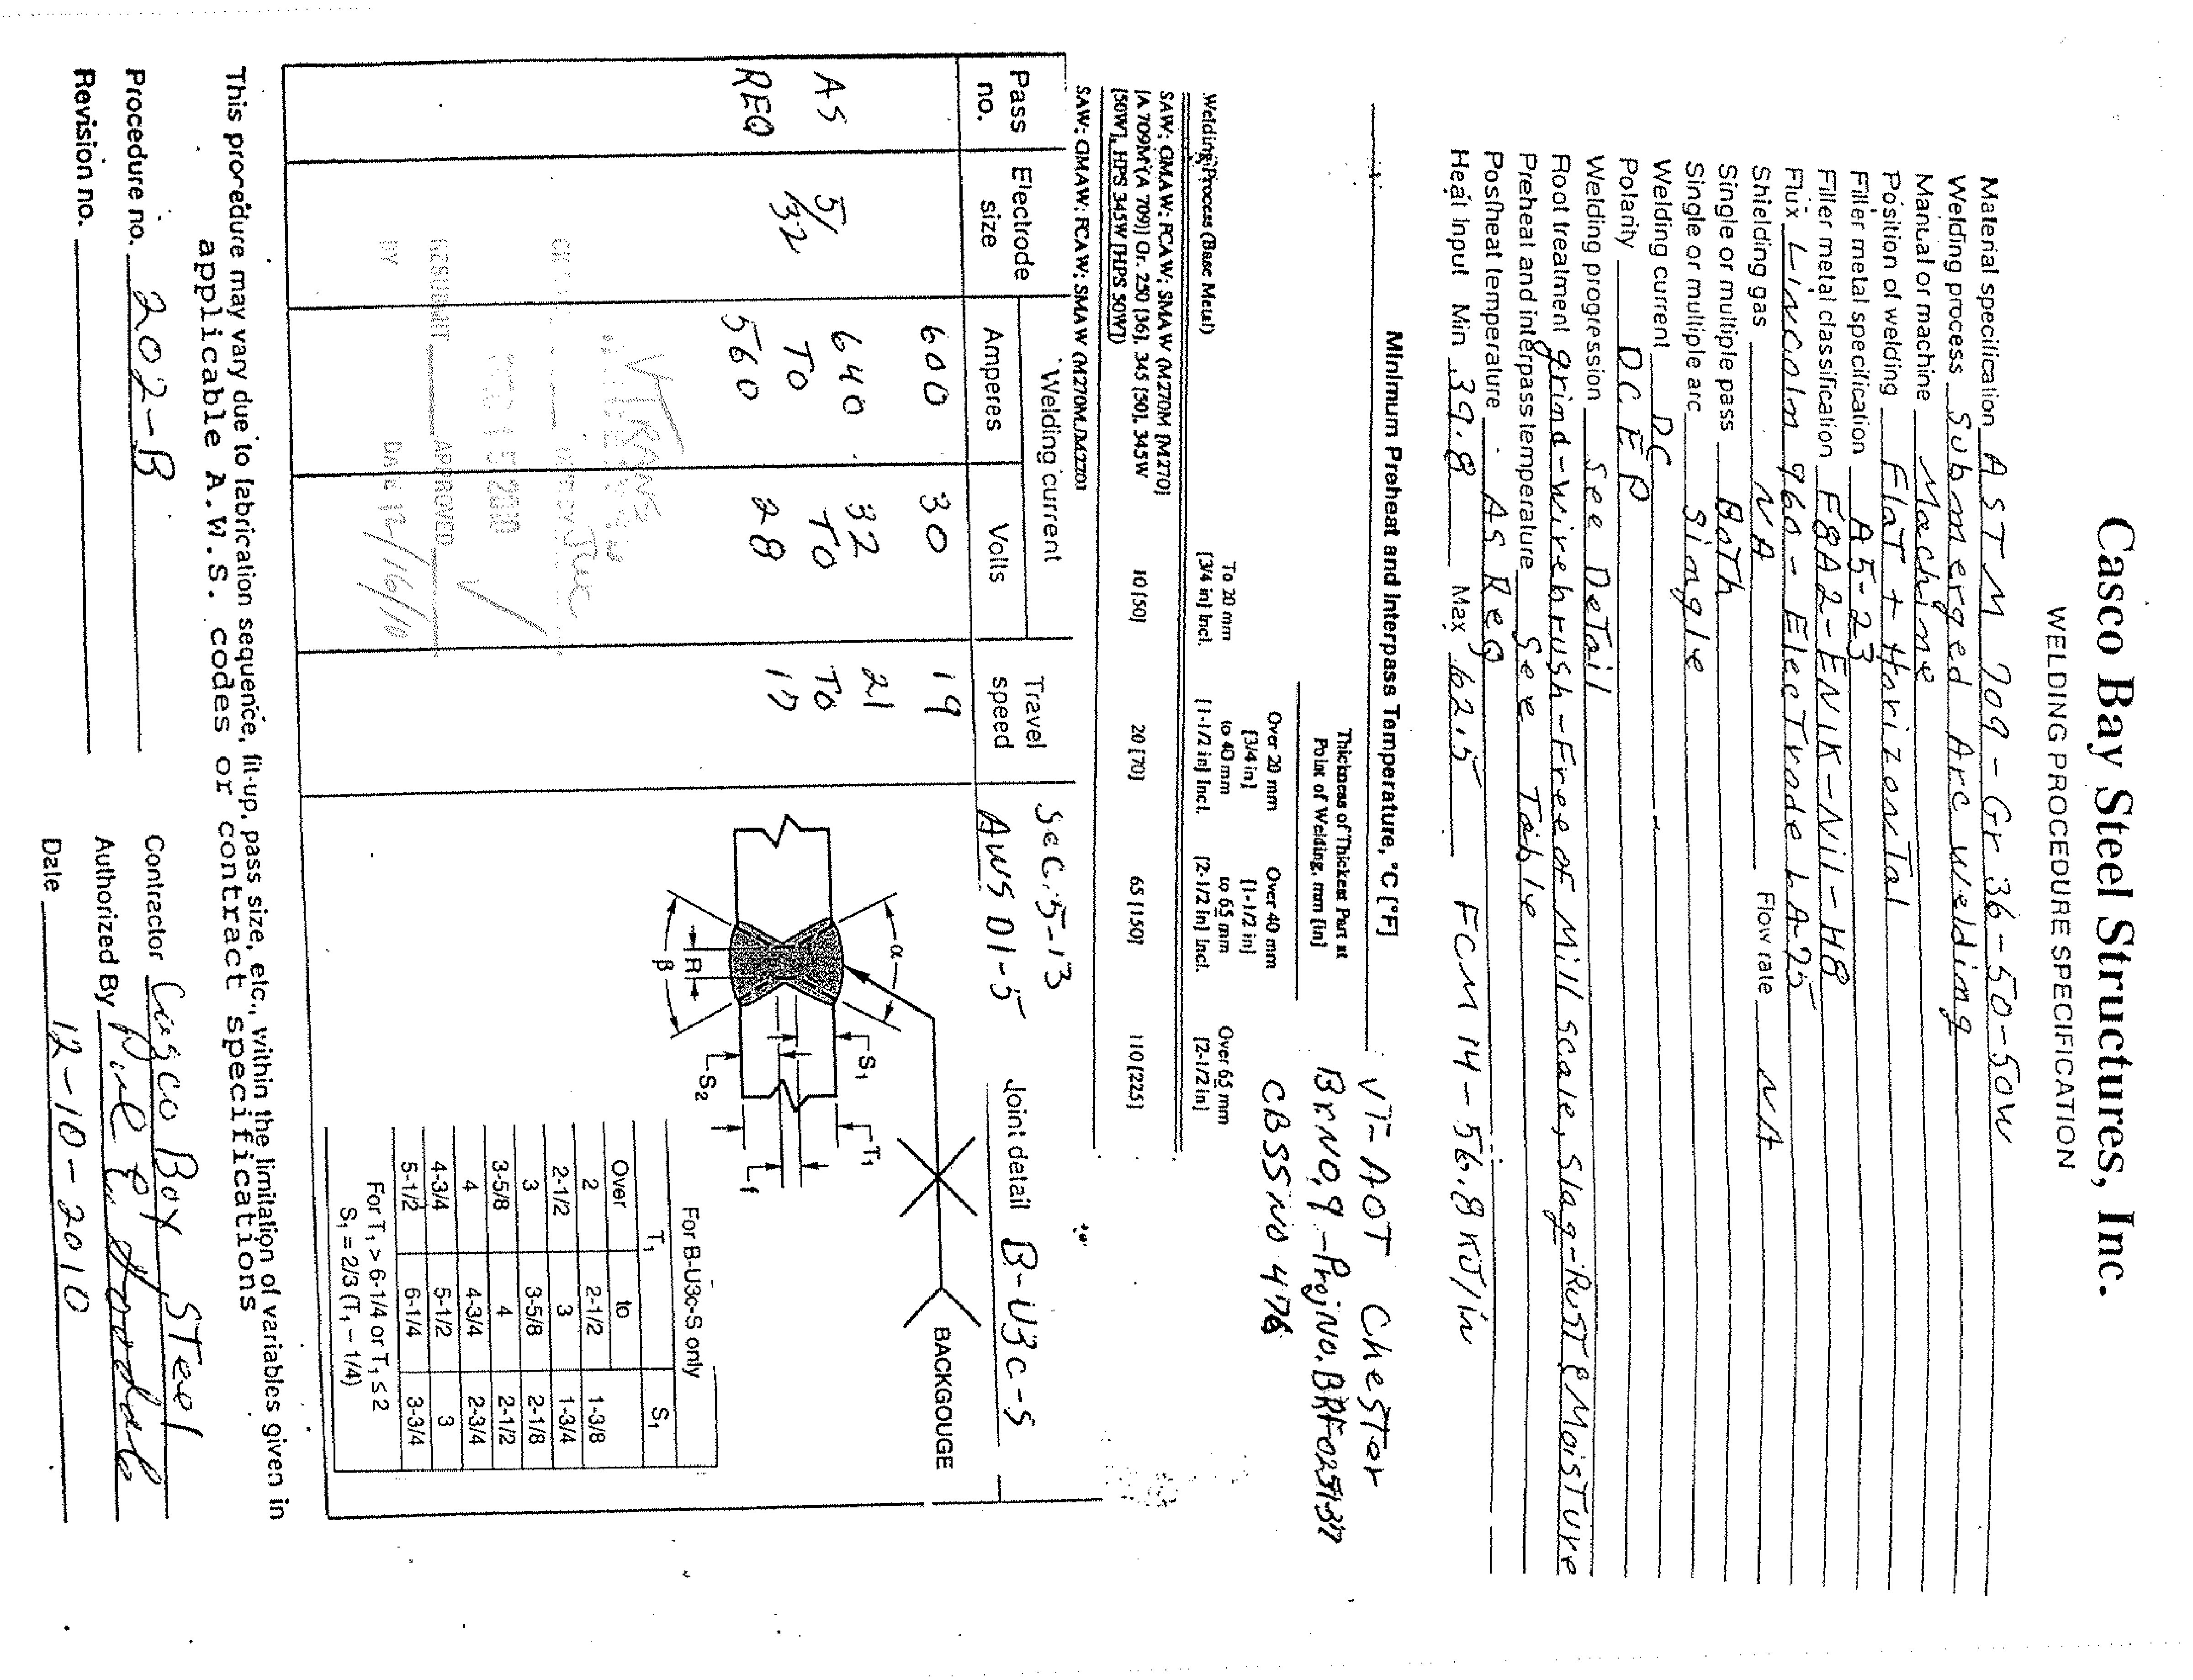 Casco Bay Steel Structures, Inc.
WELDING PROCEDURE SPECIFICATION
Material specification ASTM 709-Gr 36-50-50W
Welding process Submerged Arc welding
Manual or machine Machine
Position of welding Flat + Horizontal
Filler metal specification A5-23
Filler metal classification F8A2-ENIK-Ni1-H8
Flux Lincoln 960 - Electrode LA-75
Shielding gas NA Flow rate NA
Single or multiple pass Both
Single or multiple arc Single
Welding current DC
Polarity DCEP
Welding progression See Detail
Root treatment grind-wirebrush-Free of Mill scale, Slag-Rust & Moisture
Preheat and interpass temperature See Table
Postheat temperature AS Req
Heat Input Min 39.8 Max 62.5 FCM 14-56.8 KJ/in
Minimum Preheat and Interpass Temperature, °C [°F]
VT-AOT Chester
Br NO, 9 - Proj NO. BRF 0251-37
CBSS NO 476
Thickness of Thickest Part at
Point of Welding, mm [in]
Welding Process (Base Metal)
To 20 mm
[3/4 in] Incl.
Over 20 mm
[3/4 in]
to 40 mm
[1-1/2 in] Incl.
Over 40 mm
[1-1/2 in]
to 65 mm
[2-1/2 in] Incl.
Over 65 mm
[2-1/2 in]
SAW; GMAW; FCAW; SMAW (M270M [M270]
[A 709M (A 709)] Gr. 250 [36], 345 [50], 345W
[50W], HPS 345W [HPS 50W])
10 [50] 20 [70] 65 [150] 110 [225]
SAW; GMAW; FCAW; SMAW (M270M [M270]
Pass
no.
Electrode
size
Welding current
Amperes Volts
Travel
speed
Sec. 5-13
AWS D1-5
Joint detail B-U3c-S
600 30 19
AS 5/32 640 32 21
TO TO TO
REQ 560 28 17
BACKGOUGE
α
S1
T1
R
β
S2
f
For B-U3c-S only
T1 S1
Over to
2 2-1/2 1-3/8
2-1/2 3 1-3/4
3 3-5/8 2-1/8
3-5/8 4 2-1/2
4 4-3/4 2-3/4
4-3/4 5-1/2 3
5-1/2 6-1/4 3-3/4
For T1 > 6-1/4 or T1 ≤ 2
S1 = 2/3 (T1 – 1/4)
VTRANS
CK'D BY JWC
DEC 15 2010
RESUBMIT APPROVED ✓
BY DATE 12/16/10
This procedure may vary due to fabrication sequence, fit-up, pass size, etc., within the limitation of variables given in
applicable A.W.S. codes or contract specifications
Procedure no. 202-B
Revision no.
Contractor Casco Bay Steel
Authorized By
Date 12-10-2010